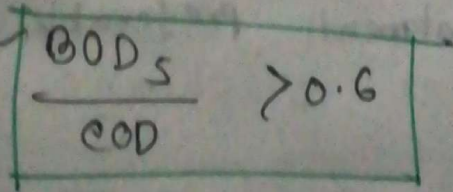 BOD5
COD
>0.6